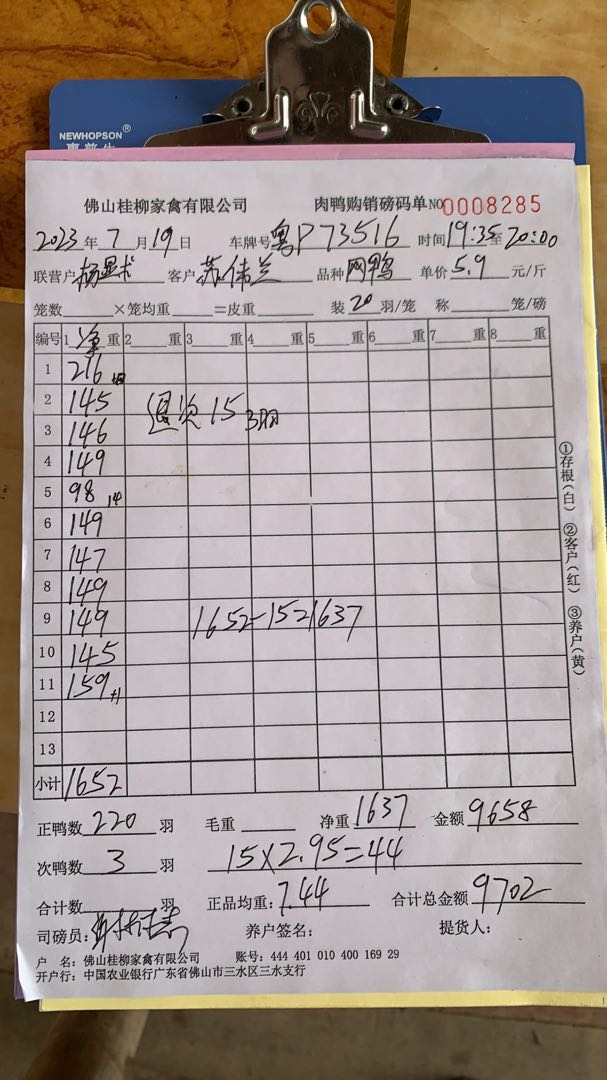 NEWHOPSON®
佛山桂柳家禽有限公司 肉鸭购销磅码单 NO 0008285
2023年7月19日 车牌号 粤P73516 时间 19:35至20:00
联营户 客户 苏伟兰 品种 网鸭 单价 5.9 元/斤
笼数______×笼均重______=皮重______ 装 20 羽/笼 称______笼/磅
编号 1 净 重 2 重 3 重 4 重 5 重 6 重 7 重 8 重
1 216
2 145 退次 15 3羽
3 146
4 149
5 98 14
6 149
7 147
8 149
9 149 1652-15=1637
10 145
11 159 +1
12
13
小计 1652
①存根(白) ②客户(红) ③养户(黄)
正鸭数 220 羽 毛重 净重 1637 金额 9658
次鸭数 3 羽 15×2.95=44
合计数 羽 正品均重: 7.44 合计总金额 9702
司磅员: 养户签名: 提货人:
户 名: 佛山桂柳家禽有限公司 账号: 444 401 010 400 169 29
开户行: 中国农业银行广东省佛山市三水区三水支行